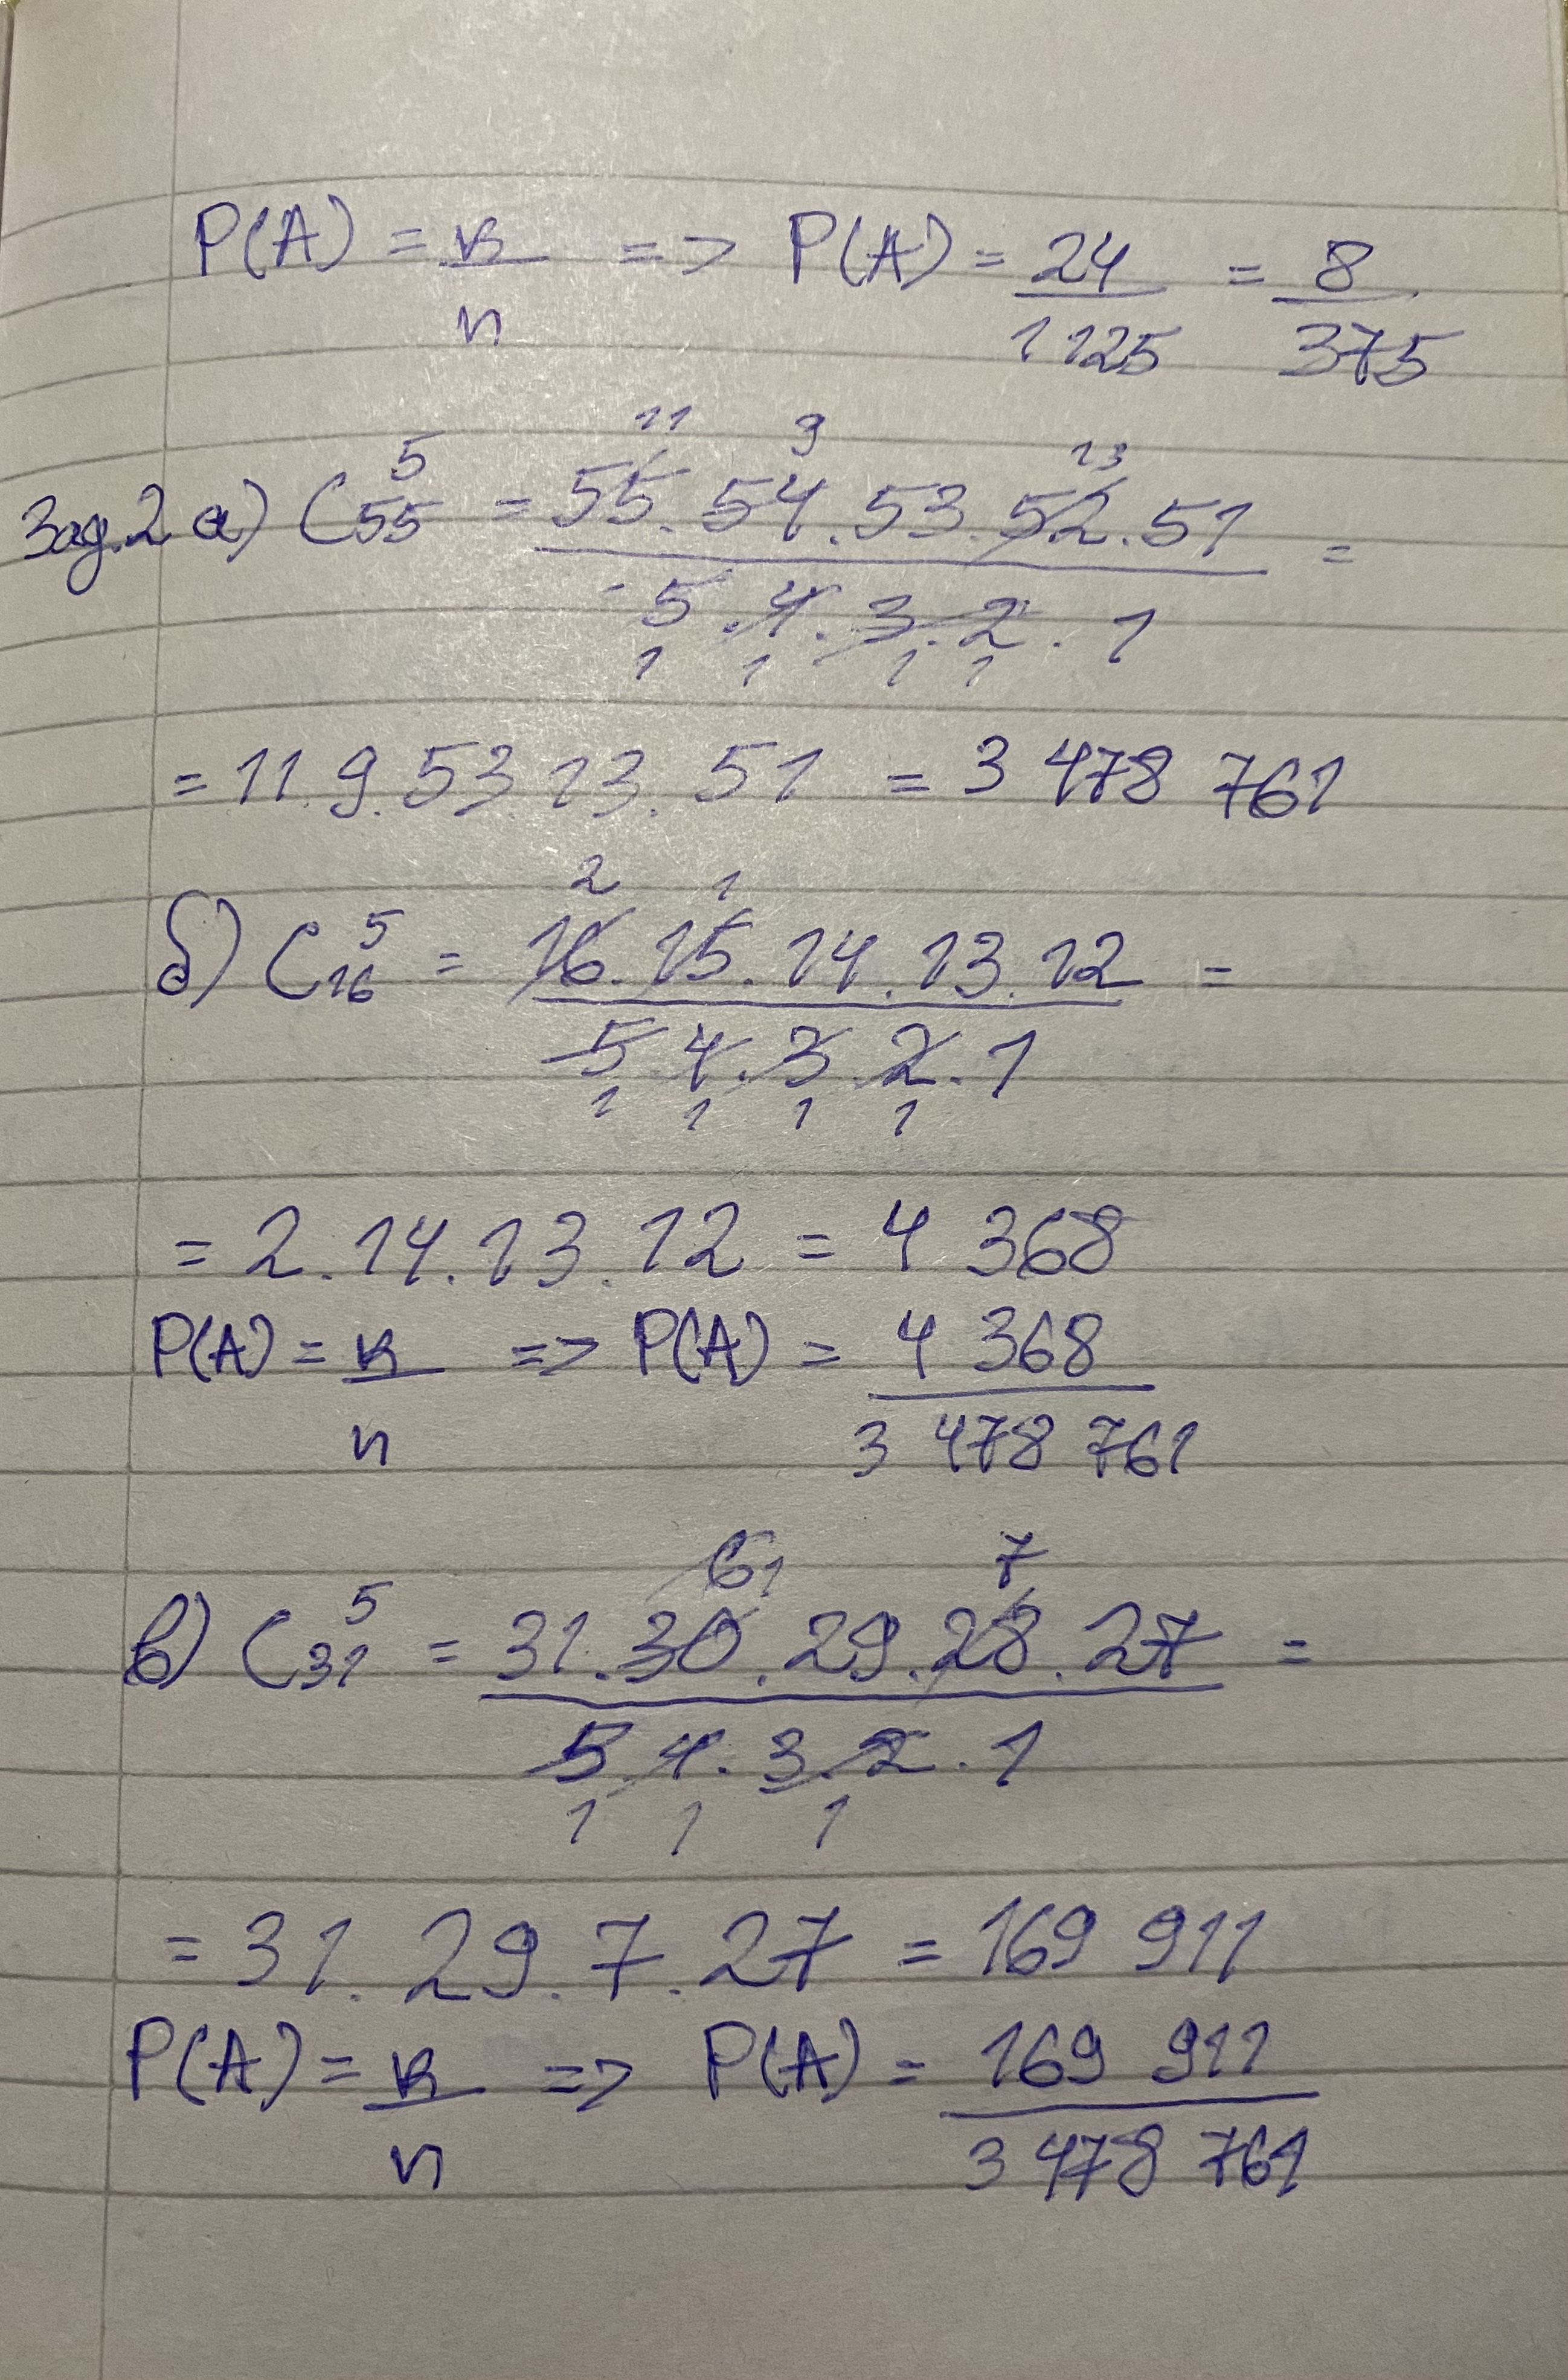 P(A) = к/n => P(A) = 24/1125 = 8/375
11 9 13
Зад.2 а) C₅₅⁵ = 55.54.53.52.51 =
5.4.3.2.1
1 1 1 1
= 11.9.53.13.51 = 3 478 761
2 1
б) C₁₆⁵ = 16.15.14.13.12 =
5.4.3.2.1
1 1 1 1
= 2.14.13.12 = 4 368
P(A) = к/n => P(A) = 4 368/3 478 761
6 1 7
в) C₃₁⁵ = 31.30.29.28.27 =
5.4.3.2.1
1 1 1
= 31.29.7.27 = 169 911
P(A) = к/n => P(A) = 169 911/3 478 761